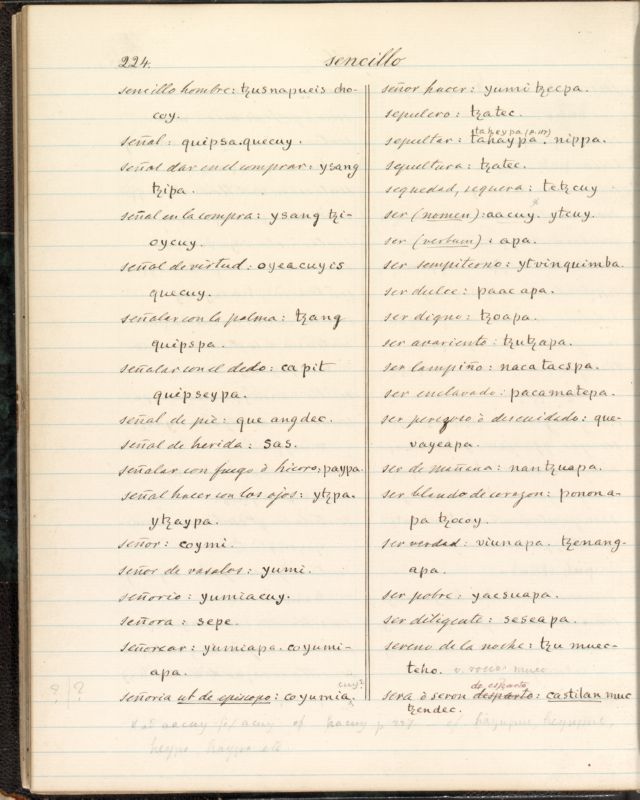 224.
sencillo
sencillo hombre: tzusnapueis cho-
coy.
señal: quipsa.quecuy.
señal dar en el comprar: ysang
tzipa.
señal en la compra: ysang tzi-
oycuy.
señal de virtud: oyeacuyis
quecuy.
señalar con la palma: tzang
quipspa.
señalar con el dedo: ca pit
quipseypa.
señal de piè: que angdec.
señal de herida: sas.
señalar con fuego ò hierro: paypa.
señal hacer con los ojos: ytzpa.
ytzaypa.
señor: coymi.
señor de vasalos: yumi.
señorio: yumiacuy.
señora: sepe.
señorear: yumiapa. coyumi-
apa.
cuy?
? / ? señoria ut de episcopo: coyumia.
señor hacer: yumi tzecpa.
sepulcro: tzatec.
taheypa (p. 117)
sepultar: tahaypa. nippa.
sepultura: tzatec.
sequedad, sequera: tetzcuy
ser (nomen): aacuy. ytcuy.
ser (verbum): apa.
ser sempiterno: ytvinquimba.
ser dulce: paac apa.
ser digno: tzoapa.
ser avariento: tzutzapa.
ser lampiño: nacatacspa.
ser enclavado: pacamatepa.
ser perezoso ò descuidado: que-
vayeapa.
ser de mañana: nantzuapa.
ser blando de corazon: ponona-
pa tzocoy.
ser verdad: viunapa. tzenang-
apa.
ser pobre: yacsuapa.
ser diligente: seseapa.
sereno de la noche: tzu muec-
teho. v. rocio muec
de esparto
sera ò seron desparto: castilan muc
tzendec.